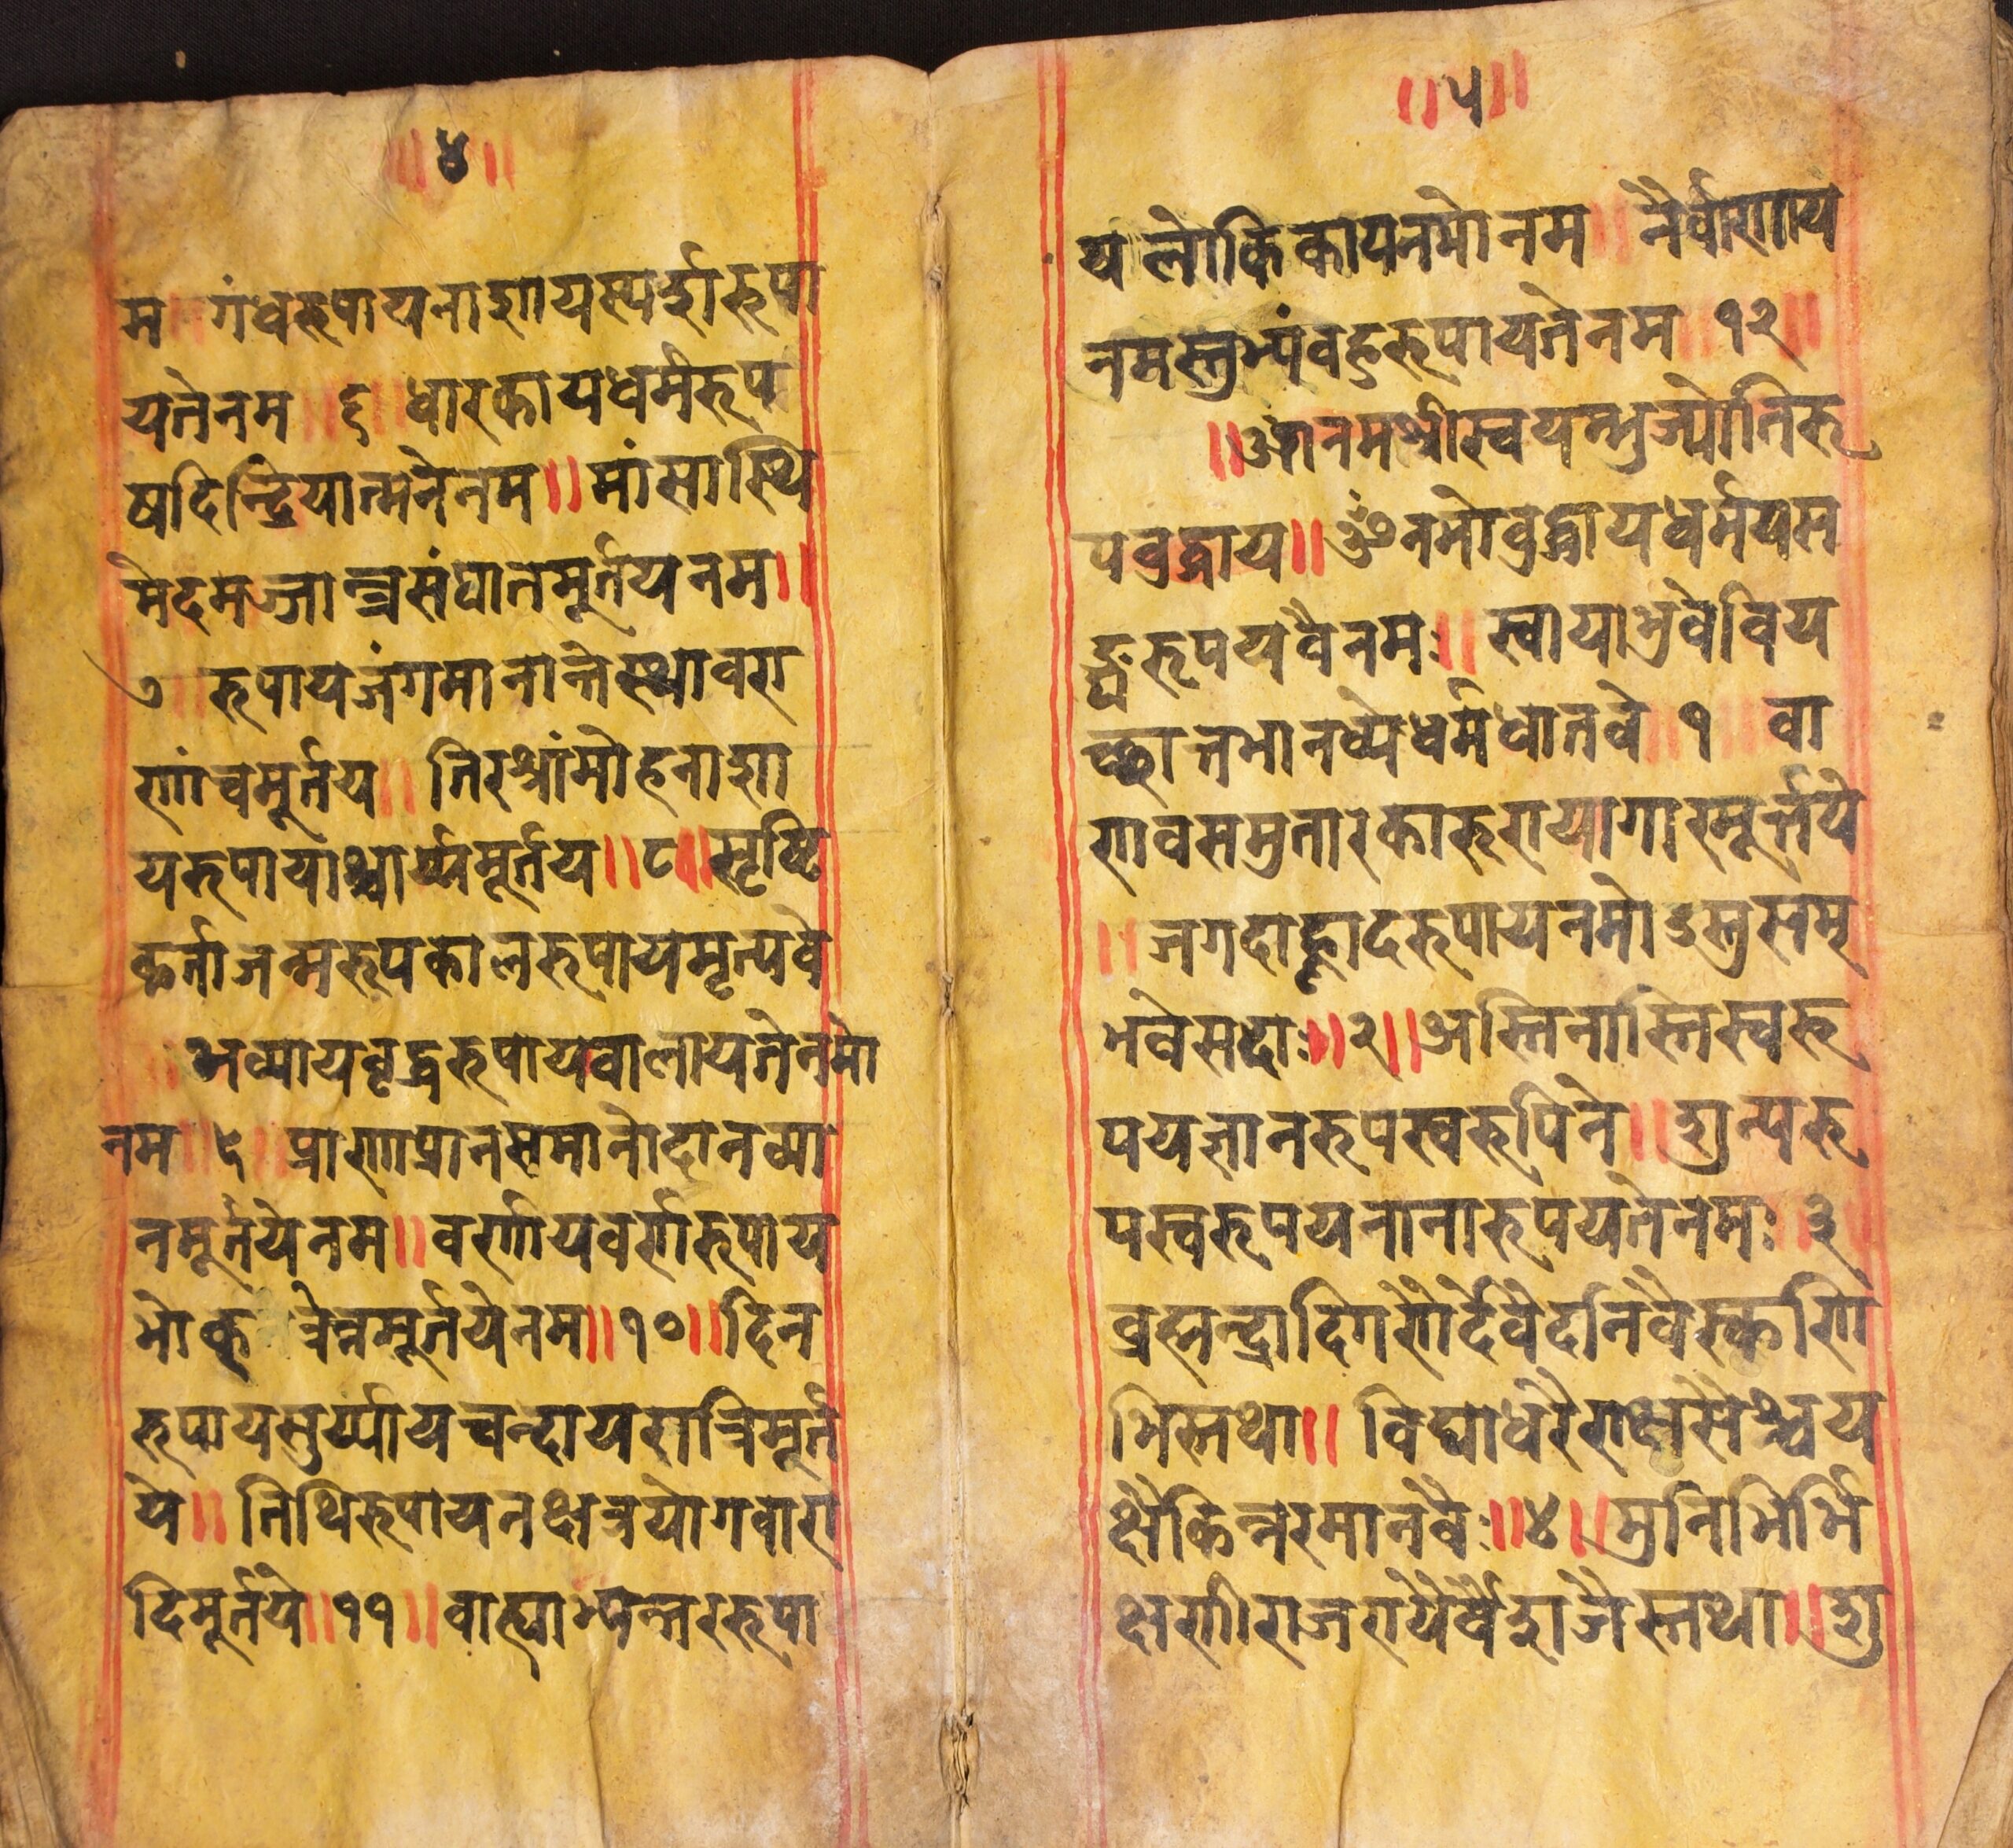 ॥ ४ ॥
म ॥ गंधरुपायनाशायस्पर्दारुपा
यतेनम ॥ ६ ॥ धारकायधर्मरूप
षदिन्द्रियात्मनेनम ॥ मांसास्थि
मेदमज्जान्त्रसंघातमूर्तयनम ॥
७ ॥ रूपायजंगमानान्तेस्थावरा
णांचमूर्तय ॥ तिरश्चांमोहनाशा
यरुपायाश्चार्य्यमूर्तय ॥ ८ ॥ सृष्टि
कर्ताजन्मरूपकालरूपायमृत्यवे
॥ भव्यायवृद्धरुपायवालायतेनमो
नम ॥ ९ ॥ प्राणप्रानसमानोदानव्या
नमूर्तयेनम ॥ वर्णायवर्णरूपाय
भोक्तृ त्रेन्नमूर्तयेनम ॥ १० ॥ दिन
रूपायसुर्य्यायचन्दायरात्रिमूर्त
ये ॥ तिथिरूपायनक्षत्रयोगवारा
दिमूर्तये ॥ ११ ॥ वाह्याभ्यन्तररूपा
॥ ५ ॥
य लोकिकायनमोनम ॥ नैर्वाणाय
नमस्तुभ्यंवहुरूपायतेनम ॥ १२ ॥
॥ ओंनमश्रीस्वयम्भुज्योतिरू
पवुद्धाय ॥ ॐनमोवुद्धायधर्मयस
ङ्घरूपयवैनमः ॥ स्वायाभुवेविय
च्छान्तभानव्येधर्मधातवे ॥ १ ॥ वा
णवसमुतारेकारूरायागारमूर्त्तये
॥ जगदाह्लादरूपायनमोऽस्तुसम्
भवेसदाः ॥ २ ॥ अस्तिनास्तिस्वरू
पयज्ञानरूपस्वरूपिने ॥ शुन्यरू
पस्वरूपयनानारूपयतेनमः ॥ ३
व्रह्मन्द्रादिगणैर्देवैदनिवैस्करिण
भिस्तथा ॥ विद्याधरैराक्षसैश्चय
क्षैकिन्नरमानवैः ॥ ४ ॥ मुनिभिर्भि
क्षणीराजरायैर्वैद्राजैस्तथा ॥ शु